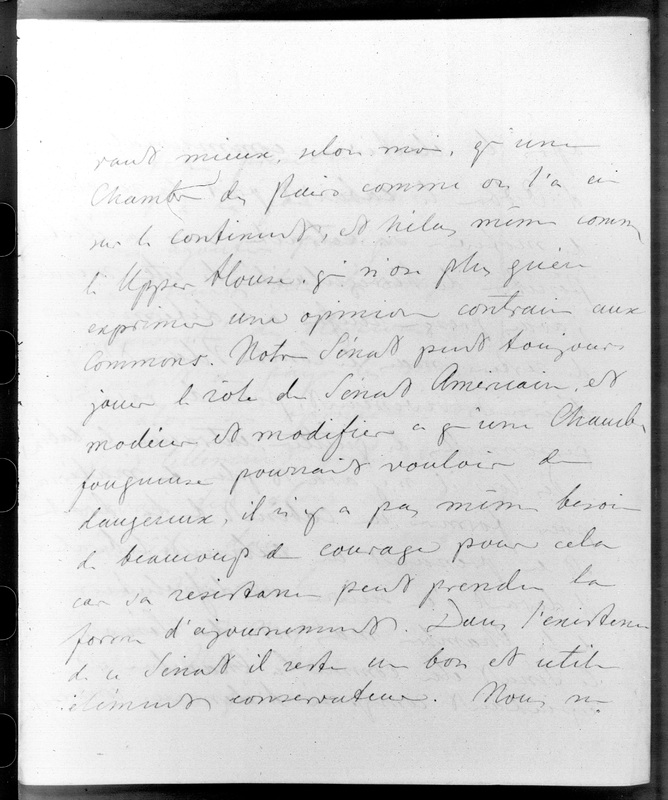 vaut mieux, selon moi, qu'une
Chambre des Pairs comme on l'a eu
sur le continent, et hélas même comme
l'Upper House, qui n'ose plus guère
exprimer une opinion contraire aux
Commons. Notre Sénat peut toujours
jouer le rôle du Sénat Américain, et
modérer et modifier ce qu'une Chambre
fougueuse pourrait vouloir de
dangereux, il n'y a pas même besoin
de beaucoup de courage pour cela
car sa resistance peut prendre la
forme d'ajournement. Dans l'existence
de ce Sénat il reste un bon et utile
élément conservateur. Nous ne